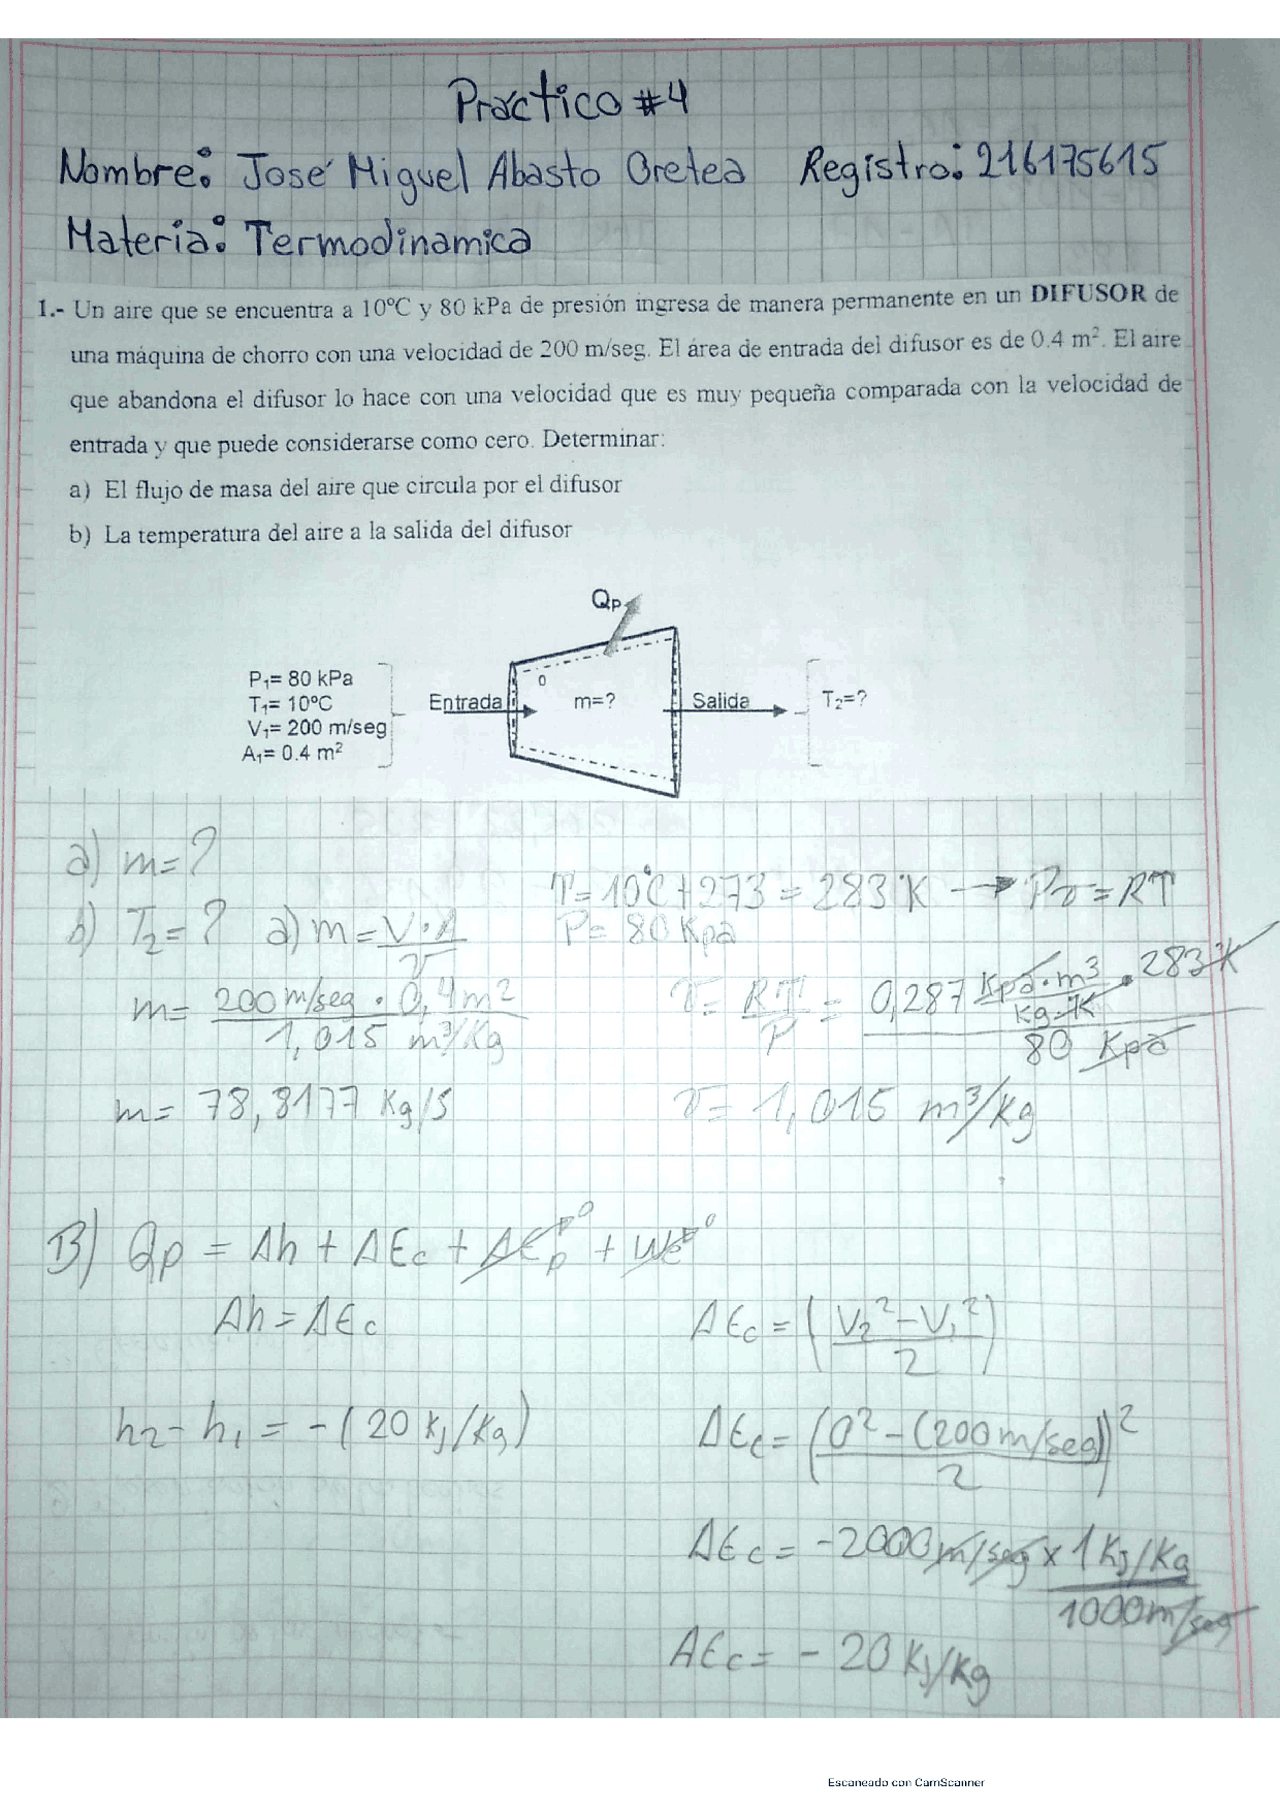 Práctico #4
Nombre: José Miguel Abasto Oretea Registro: 216175615
Materia: Termodinamica
1.- Un aire que se encuentra a 10°C y 80 kPa de presión ingresa de manera permanente en un DIFUSOR de
una máquina de chorro con una velocidad de 200 m/seg. El área de entrada del difusor es de 0.4 m². El aire
que abandona el difusor lo hace con una velocidad que es muy pequeña comparada con la velocidad de
entrada y que puede considerarse como cero. Determinar:
a) El flujo de masa del aire que circula por el difusor
b) La temperatura del aire a la salida del difusor
Qp
P₁= 80 kPa
T₁= 10°C
V₁= 200 m/seg
A₁= 0.4 m²
Entrada
0
m=?
Salida
T₂=?
a) m=?
b) T₂=? a) m= V·A / v
T= 10°C+273 = 283°K → Pv = RT
P= 80 Kpa
m= 200 m/seg · 0,4m² / 1,015 m³/Kg
v= RT / P = 0,287 Kpa·m³ / Kg·K · 283°K / 80 Kpa
m= 78,8177 Kg/s
v= 1,015 m³/Kg
B) Qp = Δh + ΔEc + ΔEp→0 + We→0
Δh = ΔEc
ΔEc = (V₂²-V₁² / 2)
h₂-h₁ = -(20 Kj/Kg)
ΔEc= (0²-(200m/seg))² / 2
ΔEc= -20000m/seg x 1 Kj/Kg / 1000m/seg
ΔEc= -20 Kj/Kg
Escaneado con CamScanner